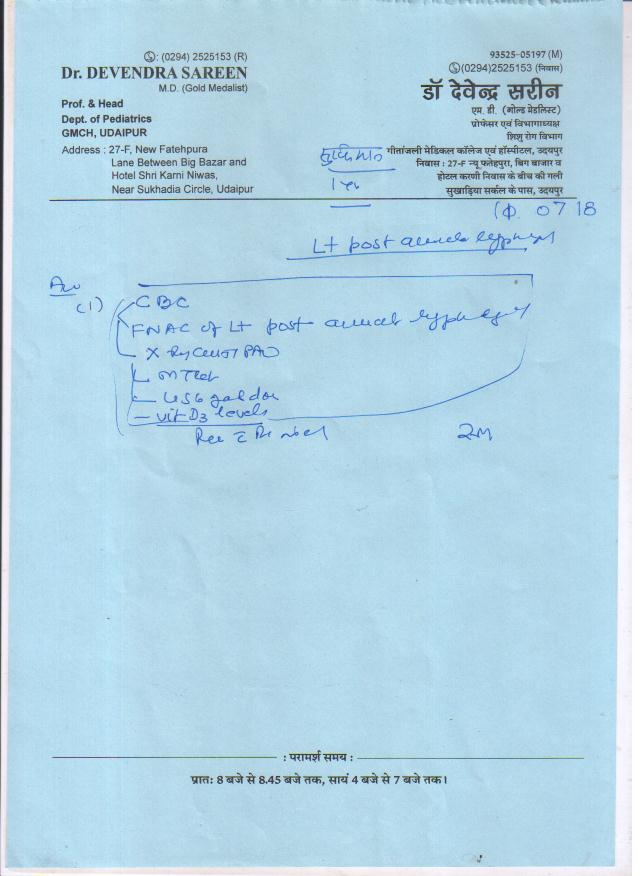 ✆: (0294) 2525153 (R)
Dr. DEVENDRA SAREEN
M.D. (Gold Medalist)
Prof. & Head
Dept. of Pediatrics
GMCH, UDAIPUR
Address : 27-F, New Fatehpura
Lane Between Big Bazar and
Hotel Shri Karni Niwas,
Near Sukhadia Circle, Udaipur
93525-05197 (M)
✆(0294)2525153 (निवास)
डॉ देवेन्द्र सरीन
एम. डी. (गोल्ड मेडलिस्ट)
प्रोफेसर एवं विभागाध्यक्ष
शिशु रोग विभाग
गीतांजली मेडिकल कॉलेज एवं हॉस्पीटल, उदयपुर
निवास : 27-F न्यू फतेहपुरा, बिग बाजार व
होटल करणी निवास के बीच की गली
सुखाड़िया सर्कल के पास, उदयपुर
07 18
Lt post
(1) CBC
FNAC of Lt post
X Ray Chest PA
USG
vit D3 levels
2M
: परामर्श समय :
प्रातः 8 बजे से 8.45 बजे तक, सायं 4 बजे से 7 बजे तक।